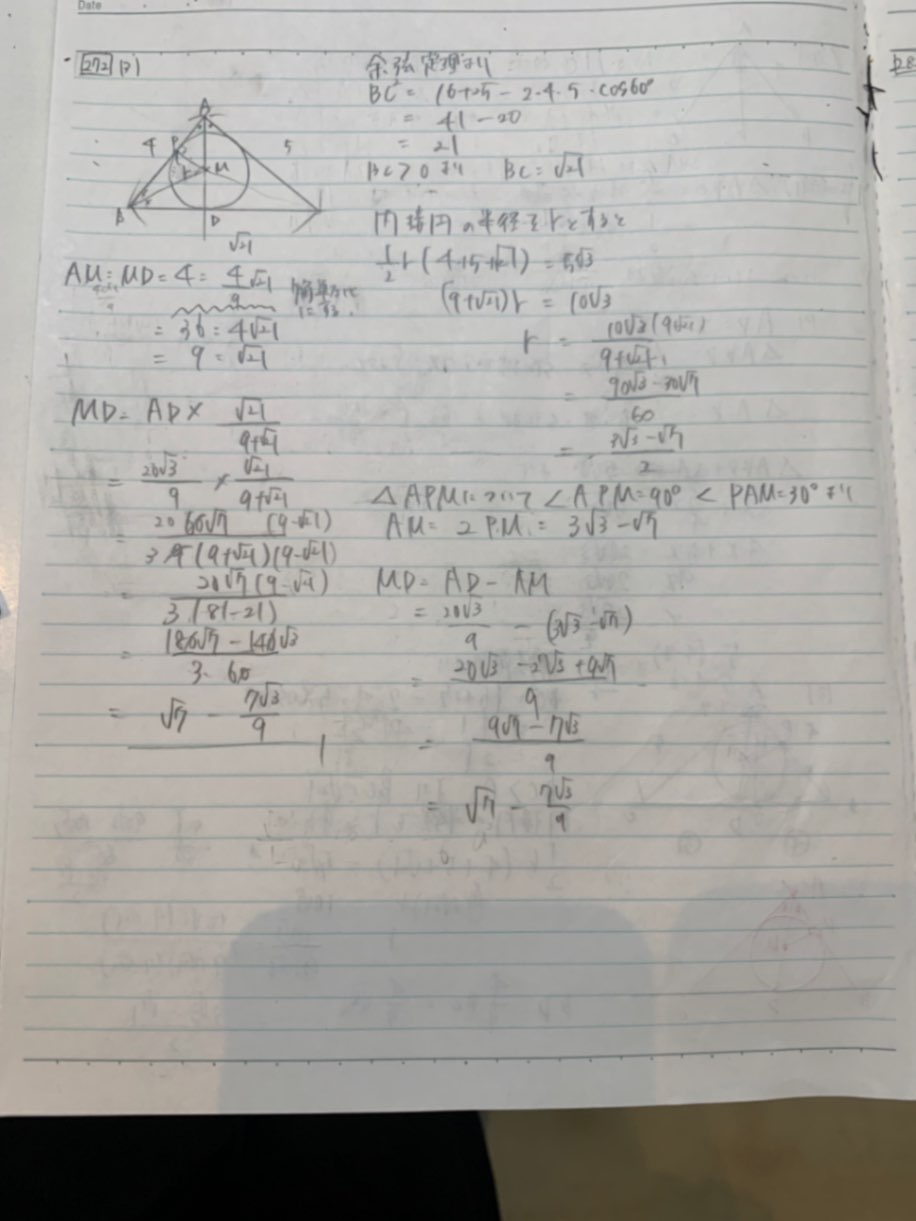 Date
272 (2)
A
4
P
5
r
M
B
D
√21
AM:MD = 4 : 4√21/9
簡単な比にする.
= 36 : 4√21
= 9 : √21
MD = AD × √21/(9+√21)
= 20√3/9 × √21/(9+√21)
= 20 60√7 (9-√21)/3 9(9+√21)(9-√21)
= 20√7(9-√21)/3(81-21)
= (180√7 - 140√3)/3・60
= √7 - 7√3/9
余弦定理より
BC² = 16+25 - 2・4・5・cos60°
= 41 - 20
= 21
BC>0 より BC = √21
内接円の半径をrとすると
1/2 r(4+5+√21) = 5√3
(9+√21)r = 10√3
r = 10√3(9-√21)/9+√21
= (90√3 - 30√7)/60
= (3√3 - √7)/2
△APMについて∠APM=90° ∠PAM=30°より
AM = 2PM = 3√3 - √7
MD = AD - AM
= 20√3/9 - (3√3 - √7)
= (20√3 - 27√3 + 9√7)/9
= (9√7 - 7√3)/9
= √7 - 7√3/9